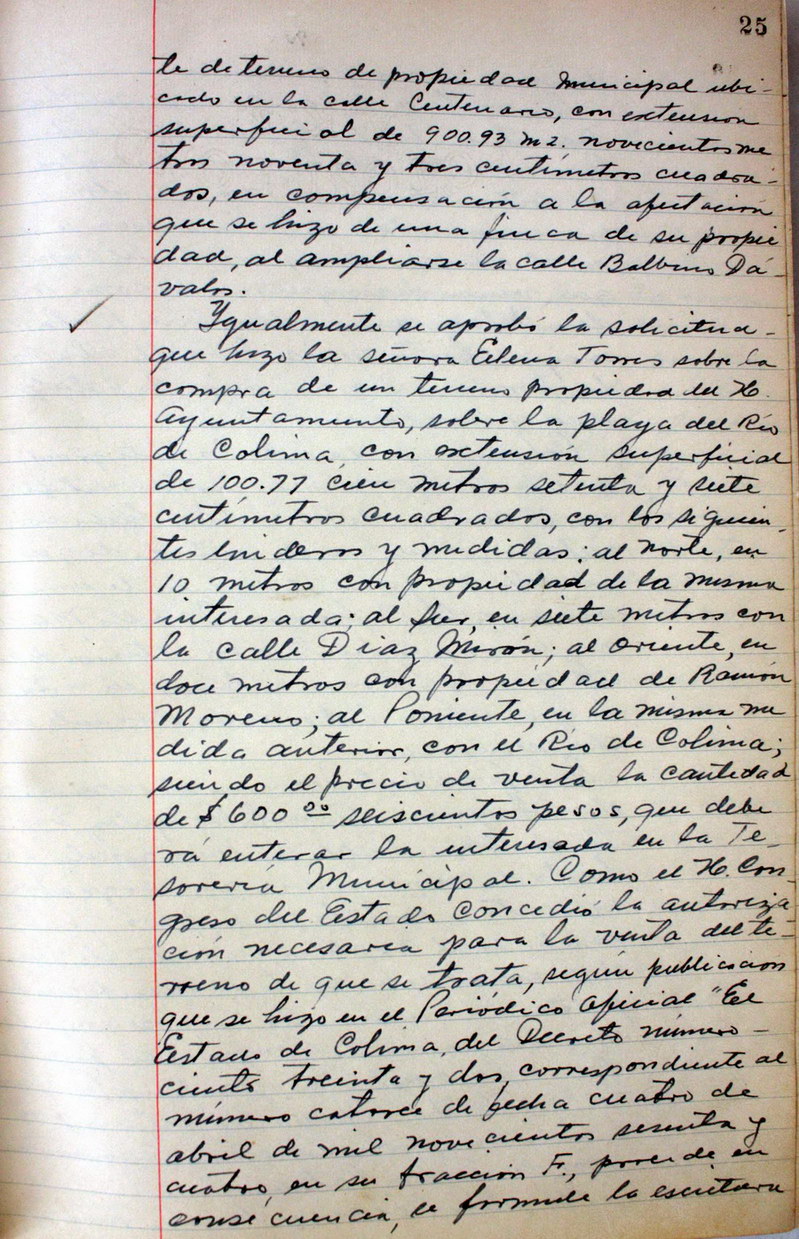 25
te de terreno de propiedad Municipal ubi-
cado en la calle Centenario, con extension
superficial de 900.93 m2. novecientos me
tros noventa y tres centímetros cuadra-
dos, en compensación a la afectación
que se hizo de una finca de su propie
dad, al ampliarse la calle Balbino Dá-
valos.
Ygualmente se aprobó la solicitud-
que hizo la señora Elena Torres sobre la
compra de un terreno propiedad del H.
Ayuntamiento, sobre la playa del Río
de Colima, con extensión superficial
de 100.77 cien metros setenta y siete
centímetros cuadrados, con los siguien-
tes linderos y medidas: al norte, en
10 metros con propiedad de la misma
interesada; al Sur, en siete metros con
la calle Diaz Mirón; al oriente, en
doce metros con propiedad de Ramón
Moreno; al Poniente, en la misma me
dida anterior, con el Río de Colima;
siendo el precio de venta la cantidad
de $600.00 seiscientos pesos, que debe
rá enterar la interesada en la Te-
sorería Municipal. Como el H. Con-
greso del Estado concedió la autoriza-
ción necesaria para la venta del te-
rreno de que se trata, según publicacion
que se hizo en el Periódico oficial "El
Estado de Colima, del Decreto número-
ciento treinta y dos, correspondiente al
número catorce de fecha cuatro de
abril de mil novecientos sesenta y
cuatro, en su fracción F., procede en
consecuencia, se formule la escritura